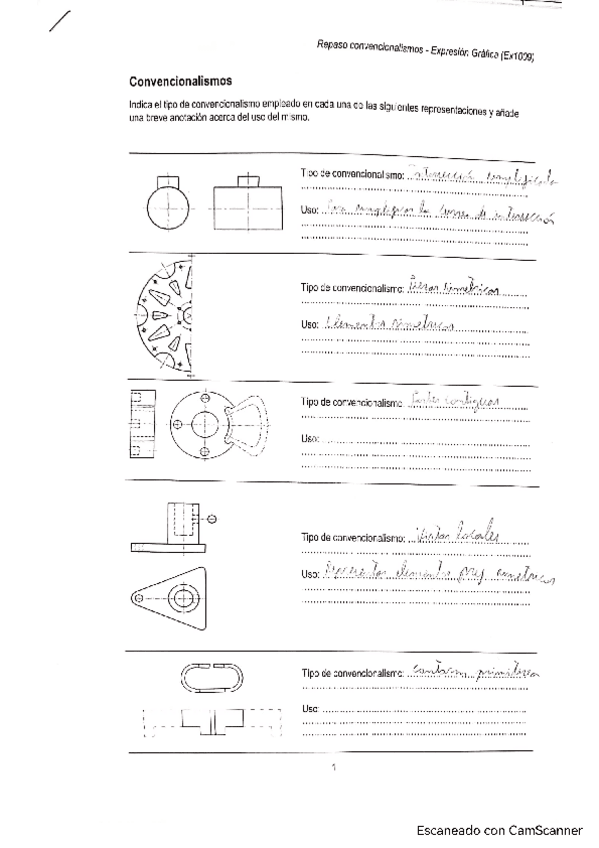 Repaso convencionalismos - Expresión Gráfica (Ex1009)
Convencionalismos
Indica el tipo de convencionalismo empleado en cada una de las siguientes representaciones y añade
una breve anotación acerca del uso del mismo.
Tipo de convencionalismo: Intersección simplificada
Uso: Para simplificar la curva de intersección
Tipo de convencionalismo: Piezas simétricas
Uso: Elementos simétricos
Tipo de convencionalismo: Partes contiguas
Uso:
Tipo de convencionalismo: Vistas locales
Uso: elementos simétricos
Tipo de convencionalismo: contornos primitivos
Uso:
1
Escaneado con CamScanner